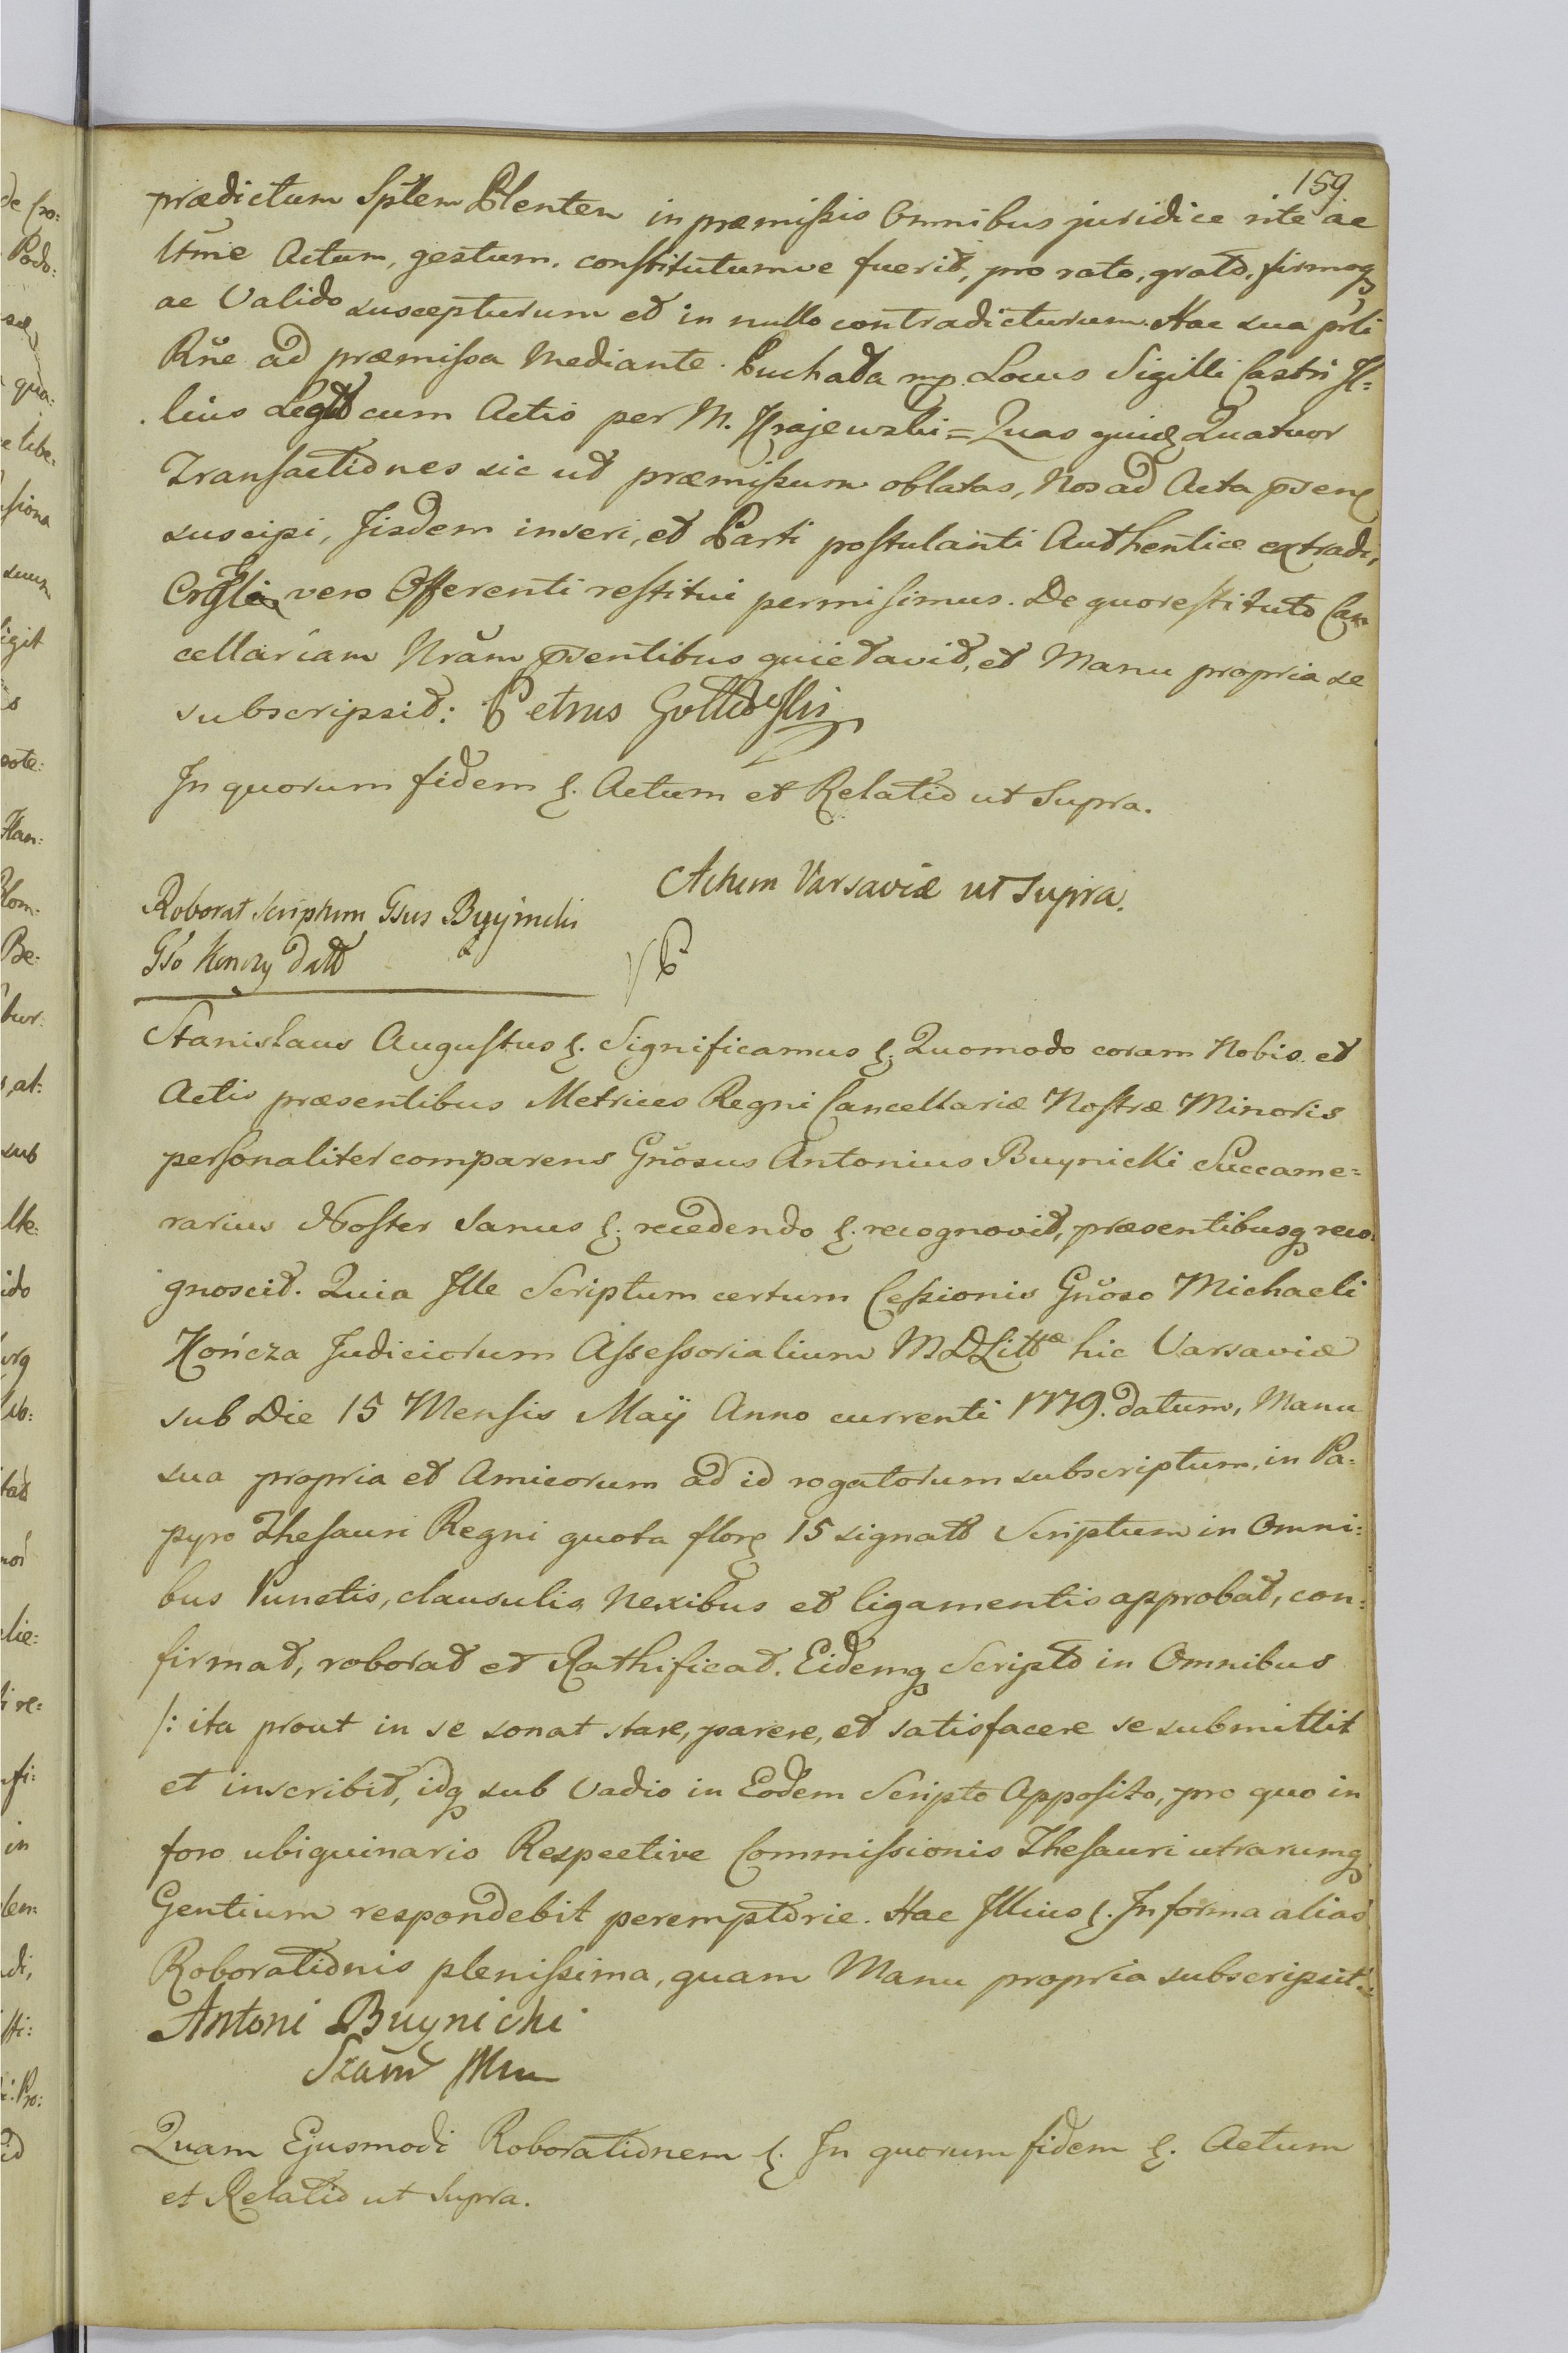 159
prædictum Sptem Plenten in præmissis Omnibus juridice rite ac
ltme Actum, gestum, constitutumve fuerit, pro rato, grato, firmoq
ac Valido suscepturum et in nullo contradicturum. Hac sua prli
Rñe ad præmissa mediante. Puchała mp. Locus Sigilli Castri
lius Legit cum Actis per M. Krajewski = Quas quid Quatuor
Transactiones sic ut præmissum oblatas, Nos ad Acta
suscipi, Iisdem inseri, et Parti postulanti Authentice extradi,
vero Offerenti restitui permisimus. De quo restituto Can
cellariam Nrãm pntibus quietavit, et Manu propria se
subscripsit: Petrus
In quorum fidem &. Actum et Relatio ut Supra.
Actum Varsaviæ ut Supra.
Roborat Scriptum Gsus Buynicki
Gso Konczy datt
Stanislaus Augustus &. Significamus &. Quomodo coram Nobis et
Actis præsentibus Metrices Regni Cancellariæ Nostræ Minoris
personaliter comparens Gnõsus Antonius Buynicki Succame=
rarius Noster Sanus &. recedendo &. recognovit, præsentibusq reco=
gnoscit. Quia Ille Scriptum certum Cessionis Gnõso Michaeli
Kończa Judiciorum Assessorialium MDLittæ hic Varsaviæ
sub Die 15 Mensis Maÿ Anno currenti 1779. datum, Manu
sua propria et Amicorum ad id rogatorum subscriptum, in Pa=
pyro Thesauri Regni quota flor 15 signatt Scriptum in Omni=
bus Punctis, clausulis Nexibus et ligamentis approbat, con=
firmat, roborat et Rathificat. Eidemq Scripto in Omnibus
/: ita prout in se sonat stare, parere, et satisfacere se submittit
et inscribit, idq sub Vadio in Eodem Scripto Apposito, pro quo in
foro ubiquinario Respective Commissionis Thesauri utrarumq
Gentium respondebit peremptorie. Hac Illius &. In forma alias
Roborationis plenissima, quam Manu propria subscripsit.
Antoni Buynicki
Quam Ejusmodi Roborationem &. In quorum fidem &. Actum
et Relatio ut Supra.